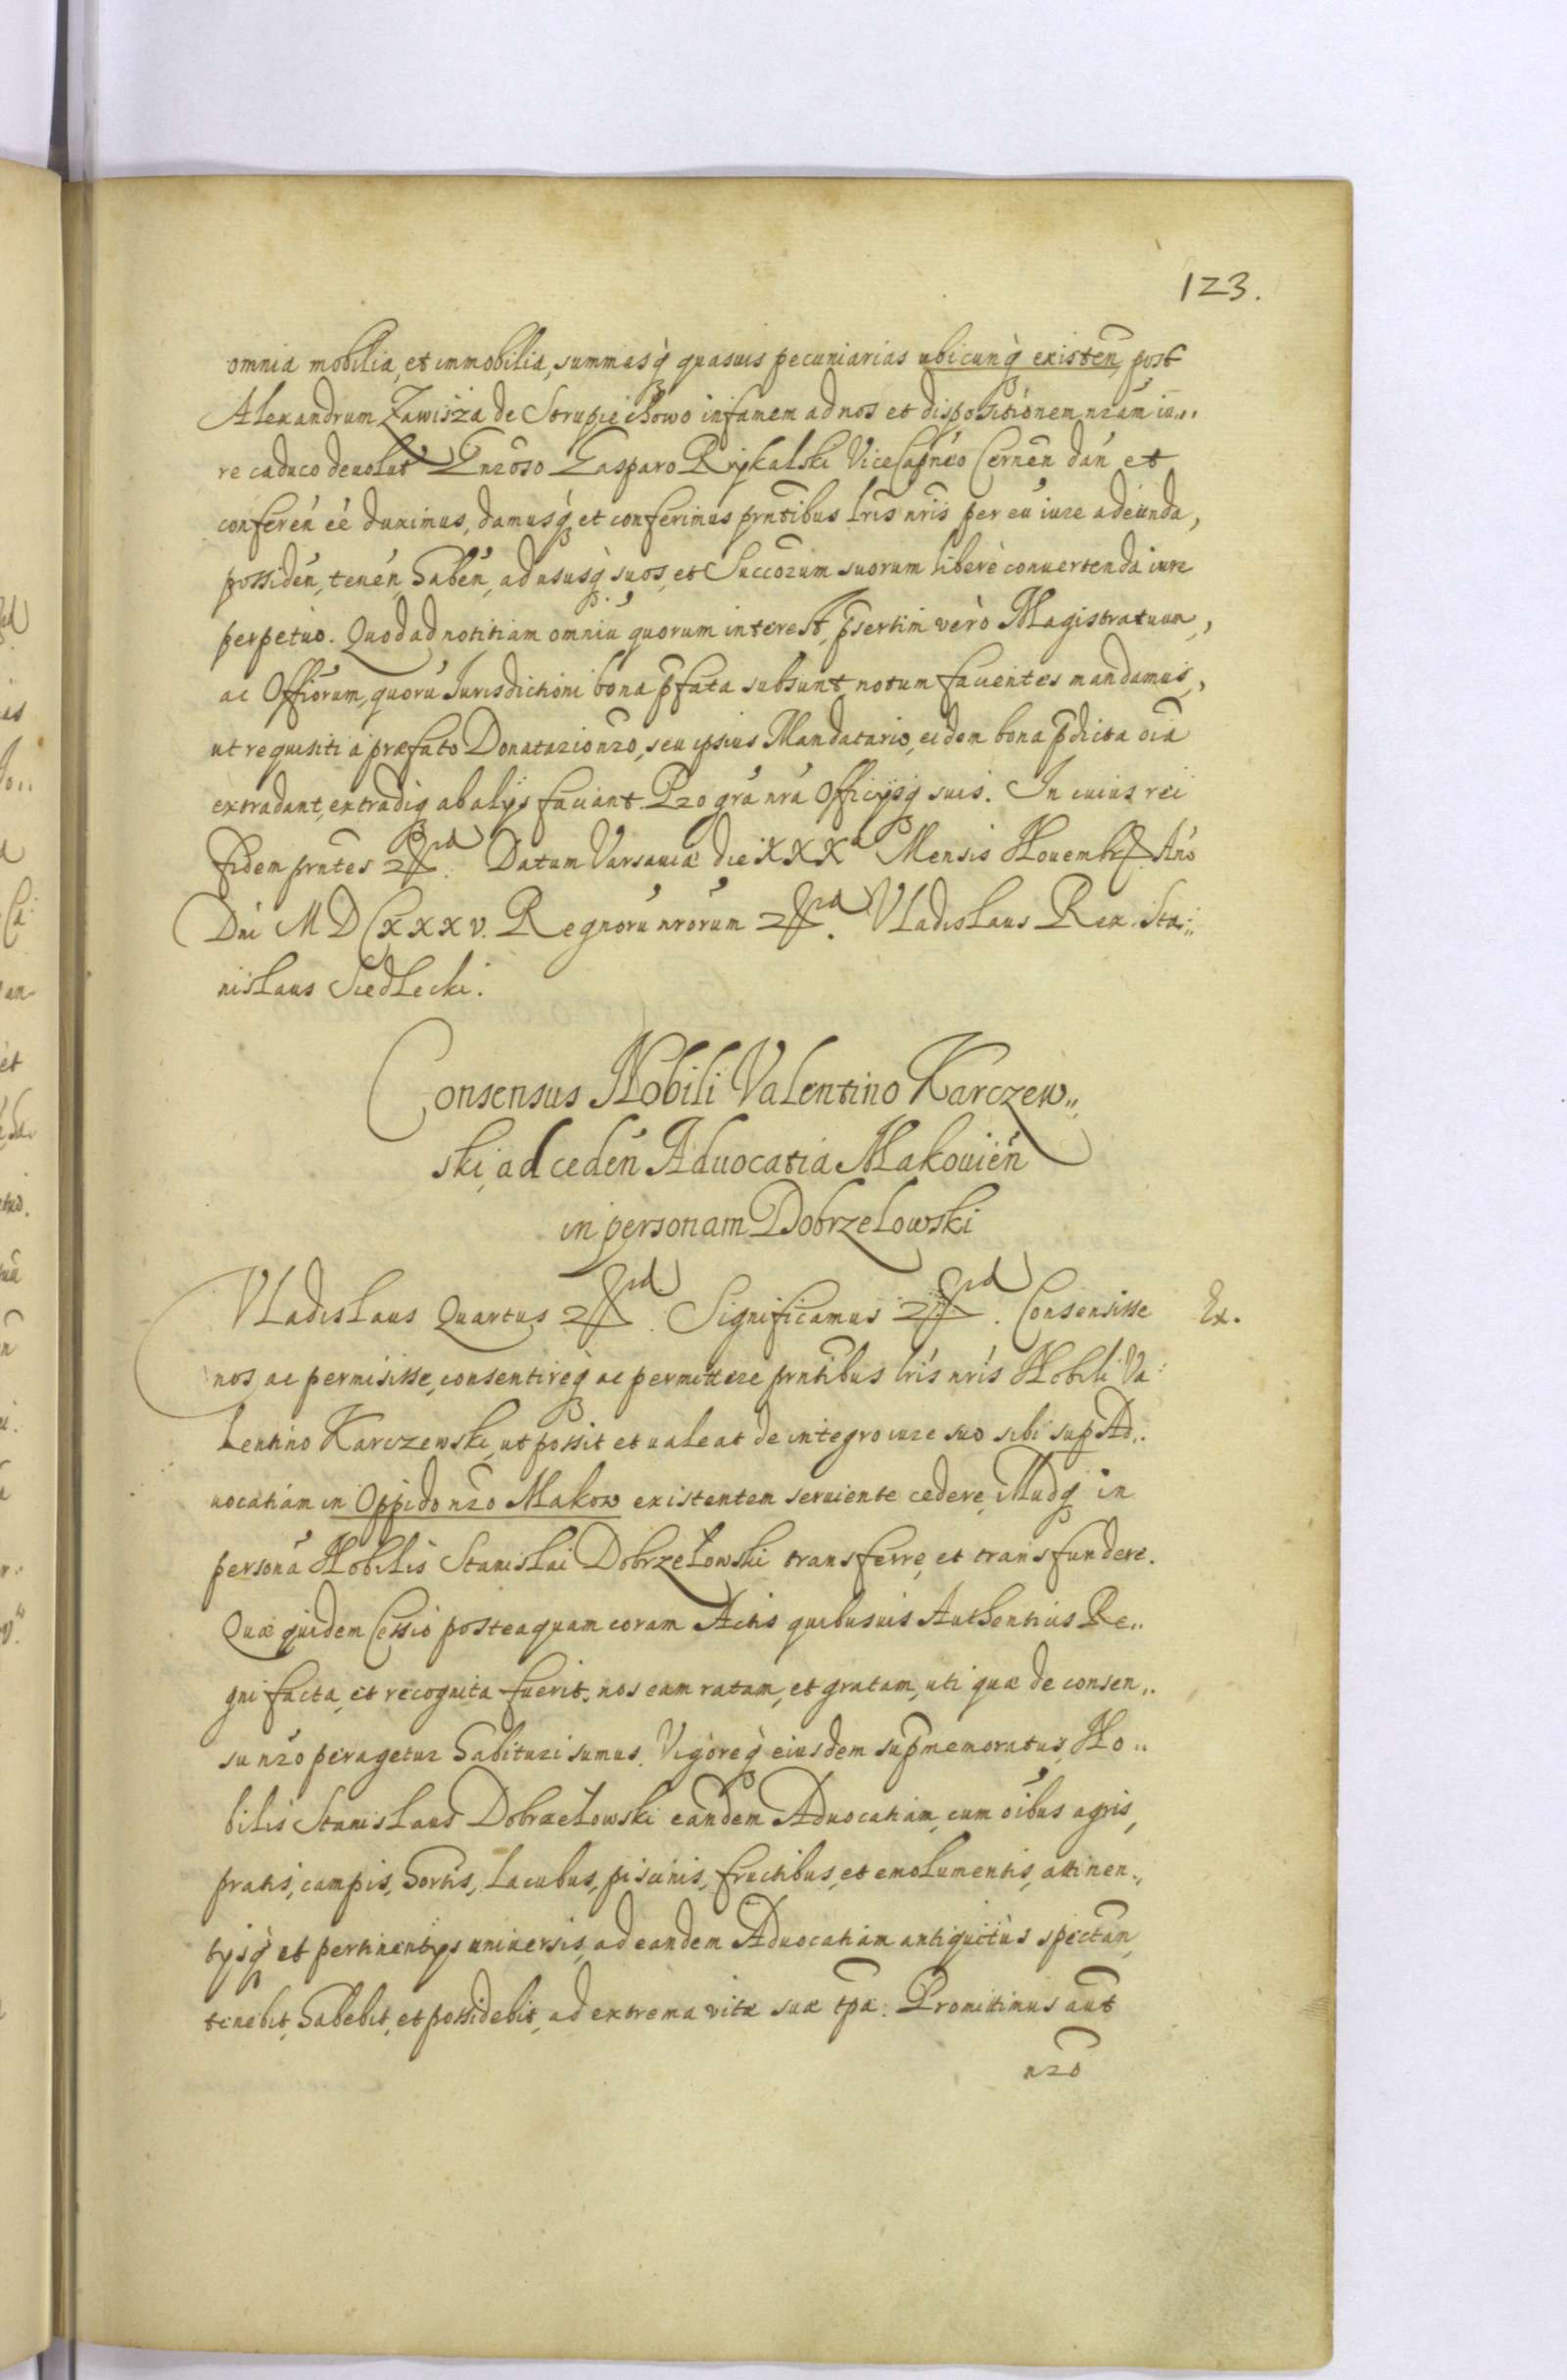 123.
omnia mobilia, et immobilia, summasq̀ quasuis pecuniarias ubicunq̀ existen̄, post
Alexandrum Zawisza de Strupiechowo infamem ad nos et dispositionem nr̃am iu,,
re caduco deuolut Gnroso Gasparo Rykalski ViceCapn̄eo Cernen̄ dan̄ et
conferen̄ eē duximus, damusq̀ et conferimus prnt̄ibus lr̄is nr̄is per eū iure adeunda,
possiden̄, tenen̄, haben̄, ad ususq̀ suos, et Succorum suorum liberè conuertenda iure
perpetuo. Quod ad notitiam omniū quorum interest, p̄sertim verò Magistratuum,
ac Offiorum, quorū Iurisdictioni bona p̄fata subsunt notum facientes mandamus,
ut requisiti à præfato Donatario nr̄o, seu ipsius Mandatario, eidem bona p̄dicta oīa
extradant, extradiq̀ ab alijs faciant. Pro grā nrā Officijsq̀ suis. In cuius rei
fidem prntes &ra. Datum Varsauiæ die XXXa Mensis Nouembr. Anō
Dni MDCXXXV. Regnorū nrorum &ra. Vladislaus Rex. Sta,,
nislaus Siedlecki.
Consensus Nobili Valentino Karczew,,
ski, ad ceden̄ Aduocatia Makouien̄
in personam Dobrzelowski
Vladislaus Quartus &ra. Significamus &ra. Consensisse
Ex.
nos ac permisisse, consentireq̀ ac permittere prntibus lr̄is nr̄is Nobili Va
lentino Karczewski, ut possit et ualeat de integro iure suo sibi sup Ad,,
uocatiam in Oppido nr̄o Makow existentem seruiente cedere, illudq̀ in
personā Nobilis Stanislai Dobrzelowski transferre, et transfundere.
Quæ quidem Cessio posteaquam coram Actis quibusuis Authenticis Re,,
gni facta, et recognita fuerit, nos eam ratam, et gratam, uti quæ de consen,,
su nr̄o peragetur habituri sumus. Vigoreq̀ eiusdem sup̄memoratus, No,,
bilis Stanislaus Dobrzelowski eandem Aduocatiam, cum oībus agris,
pratis, campis, hortis, lacubus, piscinis, fructibus, et emolumentis, attinen,,
tijsq̀ et pertinentijs uniuersis, ad eandem Aduocatiam antiquitùs spectan̄,
tenebit, habebit, et possidebit, ad extrema vitæ suæ tp̄a. Promittimus aut̄
nr̄o